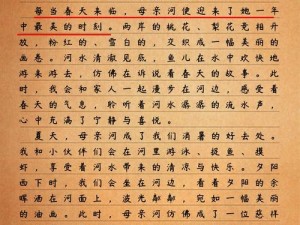 每当春天来临，母亲河便迎来了她一年
中最美的时刻。两岸的桃花、梨花竞相开
放，粉红的、雪白的，交织成一幅美丽的
画卷。河水清澈见底，鱼儿在水中欢快地
游来游去，仿佛在诉说着春天的故事。此
时，我会和家人一起漫步在河边，感受着
春天的气息，聆听着河水潺潺的流水声，
心中充满了宁静与喜悦。
夏天，母亲河成了我们消暑的好去处。
我和小伙伴们会在河里游泳、捉鱼、摸
虾，享受着河水带来的清凉与快乐。夕阳
西下时，我们会坐在河边，看着夕阳的余
晖洒在河面上，波光粼粼，宛如一幅美丽
的油画。此时，母亲河仿佛成了一位慈祥